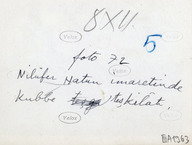 8XII
5
foto 72
Nilüfer Hatun imaretinde
kubbe teşkilat.
Velox
IIIA1363